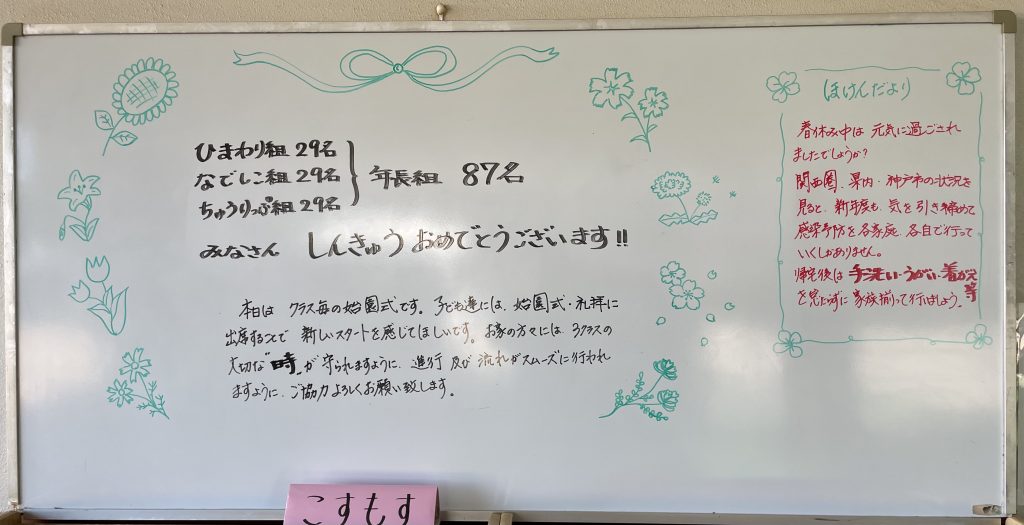 ひまわり組 29名
なでしこ組 29名
ちゅうりっぷ組 29名
年長組 87名
みなさん しんきゅう おめでとうございます!!
本日は クラス毎の始園式です。子ども達には、始園式・礼拝に
出席することで 新しいスタートを感じてほしいです。お家の方々には、3クラスの
大切な"時"が守られますように、進行 及び 流れがスムーズに行われ
ますように、ご協力よろしくお願い致します。
ほけんだより
春休み中は 元気に過ごされ
ましたでしょうか?
関西圏、県内・神戸市の状況を
見ると、新年度も、気を引き締めて
感染予防を各家庭、各自で行って
いくしかありません。
帰宅後は 手洗い・うがい・着がえ等
を見とずに 家族揃って行いましょう。
こすもす